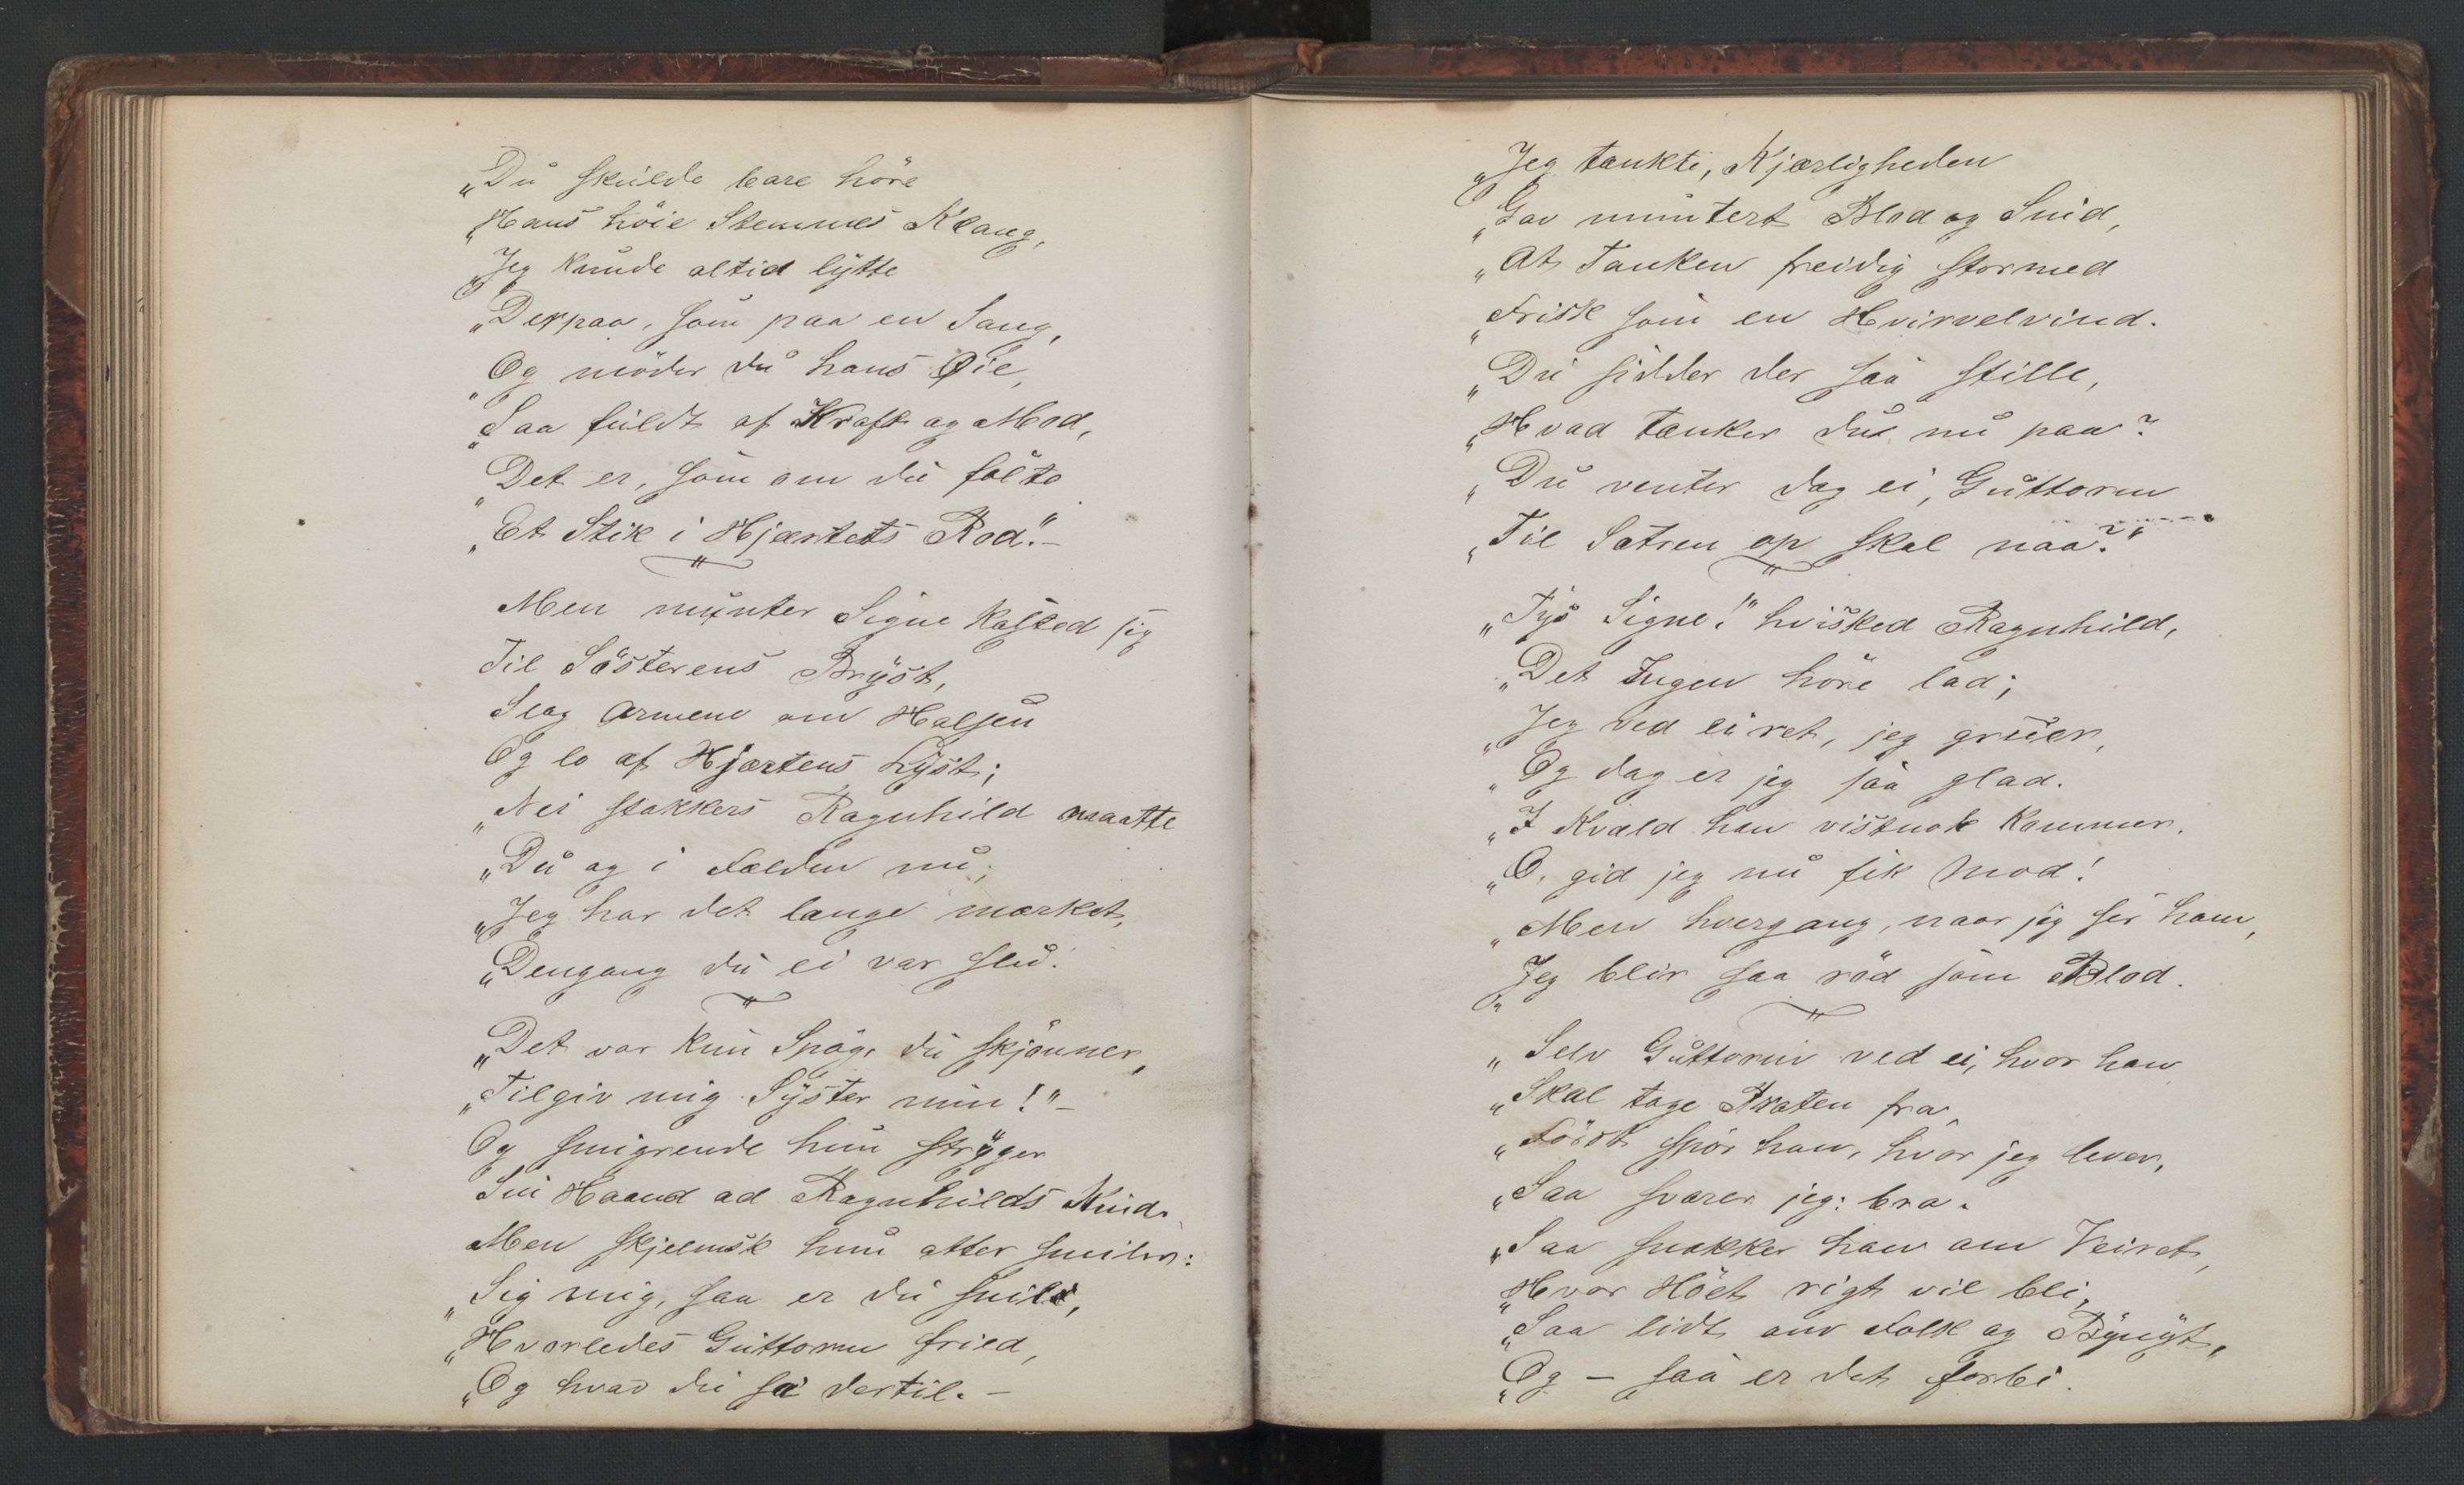 „Du skulde bare höre
„Hans höie Stemmes Klang,
„Jeg kunde altid lytte
„Derpaa, som paa en Sang,
„Og möder du hans Øie,
„Saa fuldt af Kraft og Mod,
„Det er, som om du fölte
„Et Stik i Hjærtets Rod."–
Men munter Signe kasted sig
Til Sösterens Bryst,
Slog Armene om Halsen
Og lo af Hjærtens Lyst;
„Nei stakkers Ragnhild maatte
„Du og i Fælden nu;
„Jeg har det længe mærket,
„Dengang du ei var slu.
„Det var kun Spög, du skjönner,
„Tilgiv mig Syster min!"–
Og smigrende hun stryger
Sin Haand ad Ragnhilds Kind.
Men skjelmsk hun atter smiler:
„Sig mig, saa er du snild,
„Hvorledes Guttorm fried,
„Og hvad du sa dertil.–
„Jeg tænkte, Kjærligheden
„Gav muntert Blod og Sind,
„At Tanken freidig stormed
„Frisk som en Hvirvelvind.
„Du sidder der saa stille,
„Hvad tænker du nu paa?
„Du venter dog ei, Guttorm
„Til Sætren op skal naa?"
„Tys Signe!" hvisked Ragnhild,
„Det Ingen höre lad;
„Jeg ved ei ret, jeg gruer,
„Og dog er jeg saa glad.
„I Kvæld han vistnok kommer.
„O, gid jeg nu fik Mod!
„Men hvergang, naar jeg ser ham,
„Jeg blir saa röd som Blod.
„Selv Guttorm ved ei, hvor han
„Skal tage Praten fra,
„Först spör han, hvor jeg lever,
„Saa svarer jeg: bra.
„Saa snakker han om Veiret,
„Hvor Höet rigt vil bli,
„Saa lidt om Folk og Bynyt,
„Og – saa er det forbi.